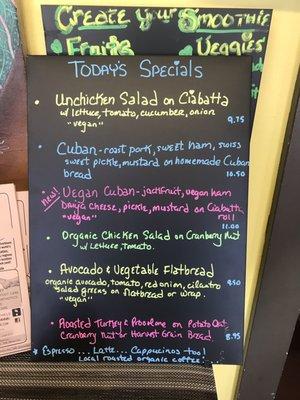 Create Your Smoothie
Fruits Veggies
Today's Specials
• Unchicken Salad on Ciabatta
w/ lettuce, tomato, cucumber, onion
"vegan" 9.75
• Cuban - roast pork, sweet ham, swiss
sweet pickle, mustard on homemade Cuban
bread 10.50
new! • Vegan Cuban - jackfruit, vegan ham
Daiya cheese, pickle, mustard on Ciabatta
"vegan" roll
11.00
• Organic Chicken Salad on Cranberry Nut
w/ lettuce, tomato.
• Avocado & Vegetable Flatbread
organic avocado, tomato, red onion, cilantro 9.50
salad greens on flatbread or wrap.
"vegan"
• Roasted Turkey & Provolone on Potato Oat
Cranberry Nut or Harvest Grain Bread. 8.95
* Espresso ... Latte ... Cappucinos too!
Local roasted organic coffee!